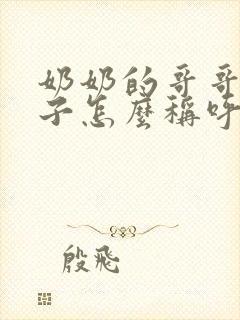 奶奶的哥哥
子怎麼稱呼
殷飛